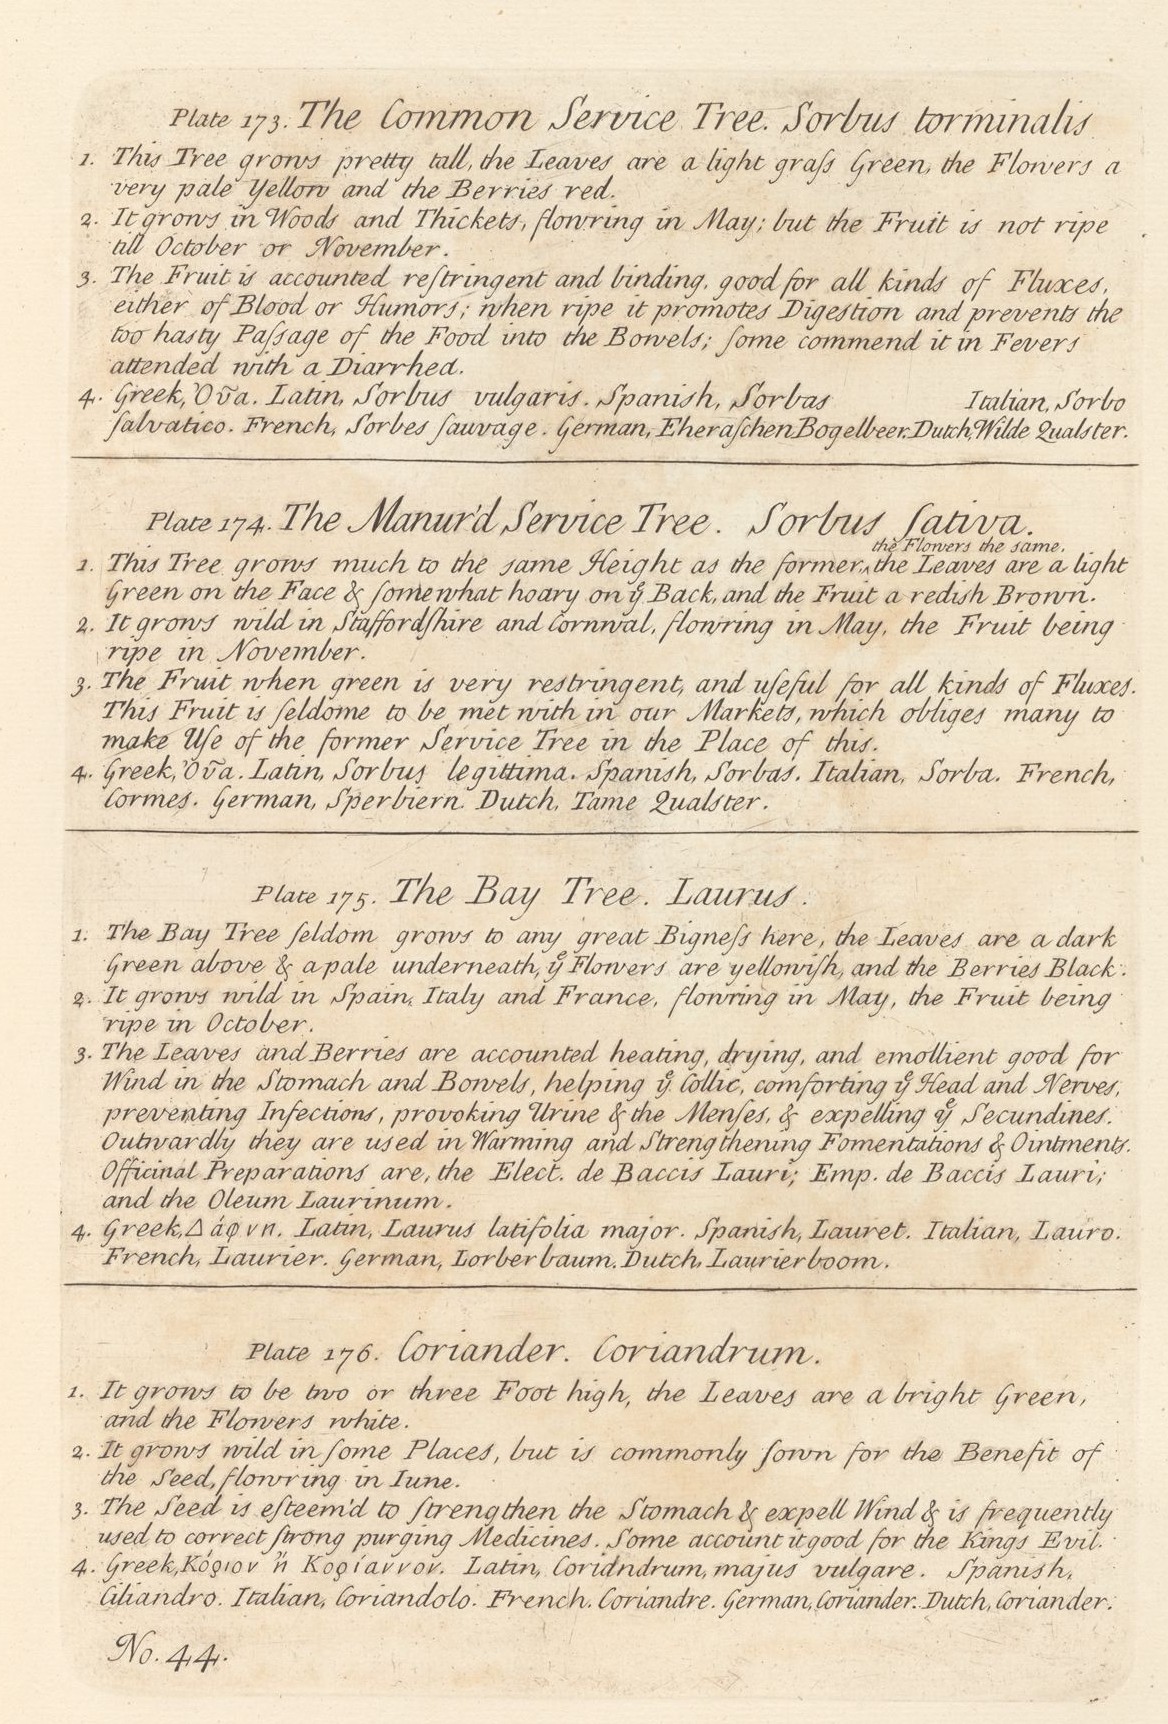 Plate 173. The Common Service Tree. Sorbus torminalis
1. This Tree grows pretty tall, the Leaves are a light graſs Green, the Flowers a
very pale Yellow and the Berries red.
2. It grows in Woods and Thickets, flowring in May; but the Fruit is not ripe
till October or November.
3. The Fruit is accounted reſtringent and binding, good for all kinds of Fluxes,
either of Blood or Humors; when ripe it promotes Digestion and prevents the
too hasty Paſsage of the Food into the Bowels; ſome commend it in Fevers
attended with a Diarrhed.
4. Greek, Ὀῦα. Latin, Sorbus vulgaris. Spanish, Sorbas Italian, Sorbo
ſalvatico. French, Sorbes ſauvage. German, Eheraſchen Bogelbeer. Dutch, Wilde Qualster.
Plate 174. The Manur'd Service Tree. Sorbus ſativa.
the Flowers the same.
1. This Tree grows much to the same Height as the former,‸the Leaves are a light
Green on the Face & ſomewhat hoary on yͤ Back, and the Fruit a redish Brown.
2. It grows wild in Staffordſhire and Cornwal, flowring in May, the Fruit being
ripe in November.
3. The Fruit when green is very restringent, and uſeful for all kinds of Fluxes.
This Fruit is ſeldome to be met with in our Markets, which obliges many to
make Uſe of the former Service Tree in the Place of this.
4. Greek, Ὀῦα. Latin, Sorbus legittima. Spanish, Sorbas. Italian, Sorba. French,
Cormes. German, Sperbiern. Dutch, Tame Qualster.
Plate 175. The Bay Tree. Laurus.
1. The Bay Tree ſeldom grows to any great Bigneſs here, the Leaves are a dark
Green above & a pale underneath, yͤ Flowers are yellowiſh, and the Berries Black.
2. It grows wild in Spain, Italy and France, flowring in May, the Fruit being
ripe in October.
3. The Leaves and Berries are accounted heating, drying, and emollient good for
Wind in the Stomach and Bowels, helping yͤ Collic, comforting yͤ Head and Nerves,
preventing Infections, provoking Urine & the Menſes, & expelling yͤ Secundines.
Outwardly they are used in Warming and Strengthening Fomentations & Ointments.
Officinal Preparations are, the Elect. de Baccis Lauri; Emp. de Baccis Lauri;
and the Oleum Laurinum.
4. Greek, Δάφνη. Latin, Laurus latifolia major. Spanish, Lauret. Italian, Lauro.
French, Laurier. German, Lorberbaum. Dutch, Laurierboom.
Plate 176. Coriander. Coriandrum.
1. It grows to be two or three Foot high, the Leaves are a bright Green,
and the Flowers white.
2. It grows wild in ſome Places, but is commonly ſown for the Benefit of
the Seed, flowring in Iune.
3. The Seed is eſteem'd to ſtrengthen the Stomach & expell Wind & is frequently
used to correct ſtrong purging Medicines. Some account it good for the Kings Evil.
4. Greek, Κόριον ἢ Κορίαννον. Latin, Coriandrum, majus vulgare. Spanish,
Ciliandro. Italian, Coriandolo. French, Coriandre. German, Coriander. Dutch, Coriander.
No. 44.